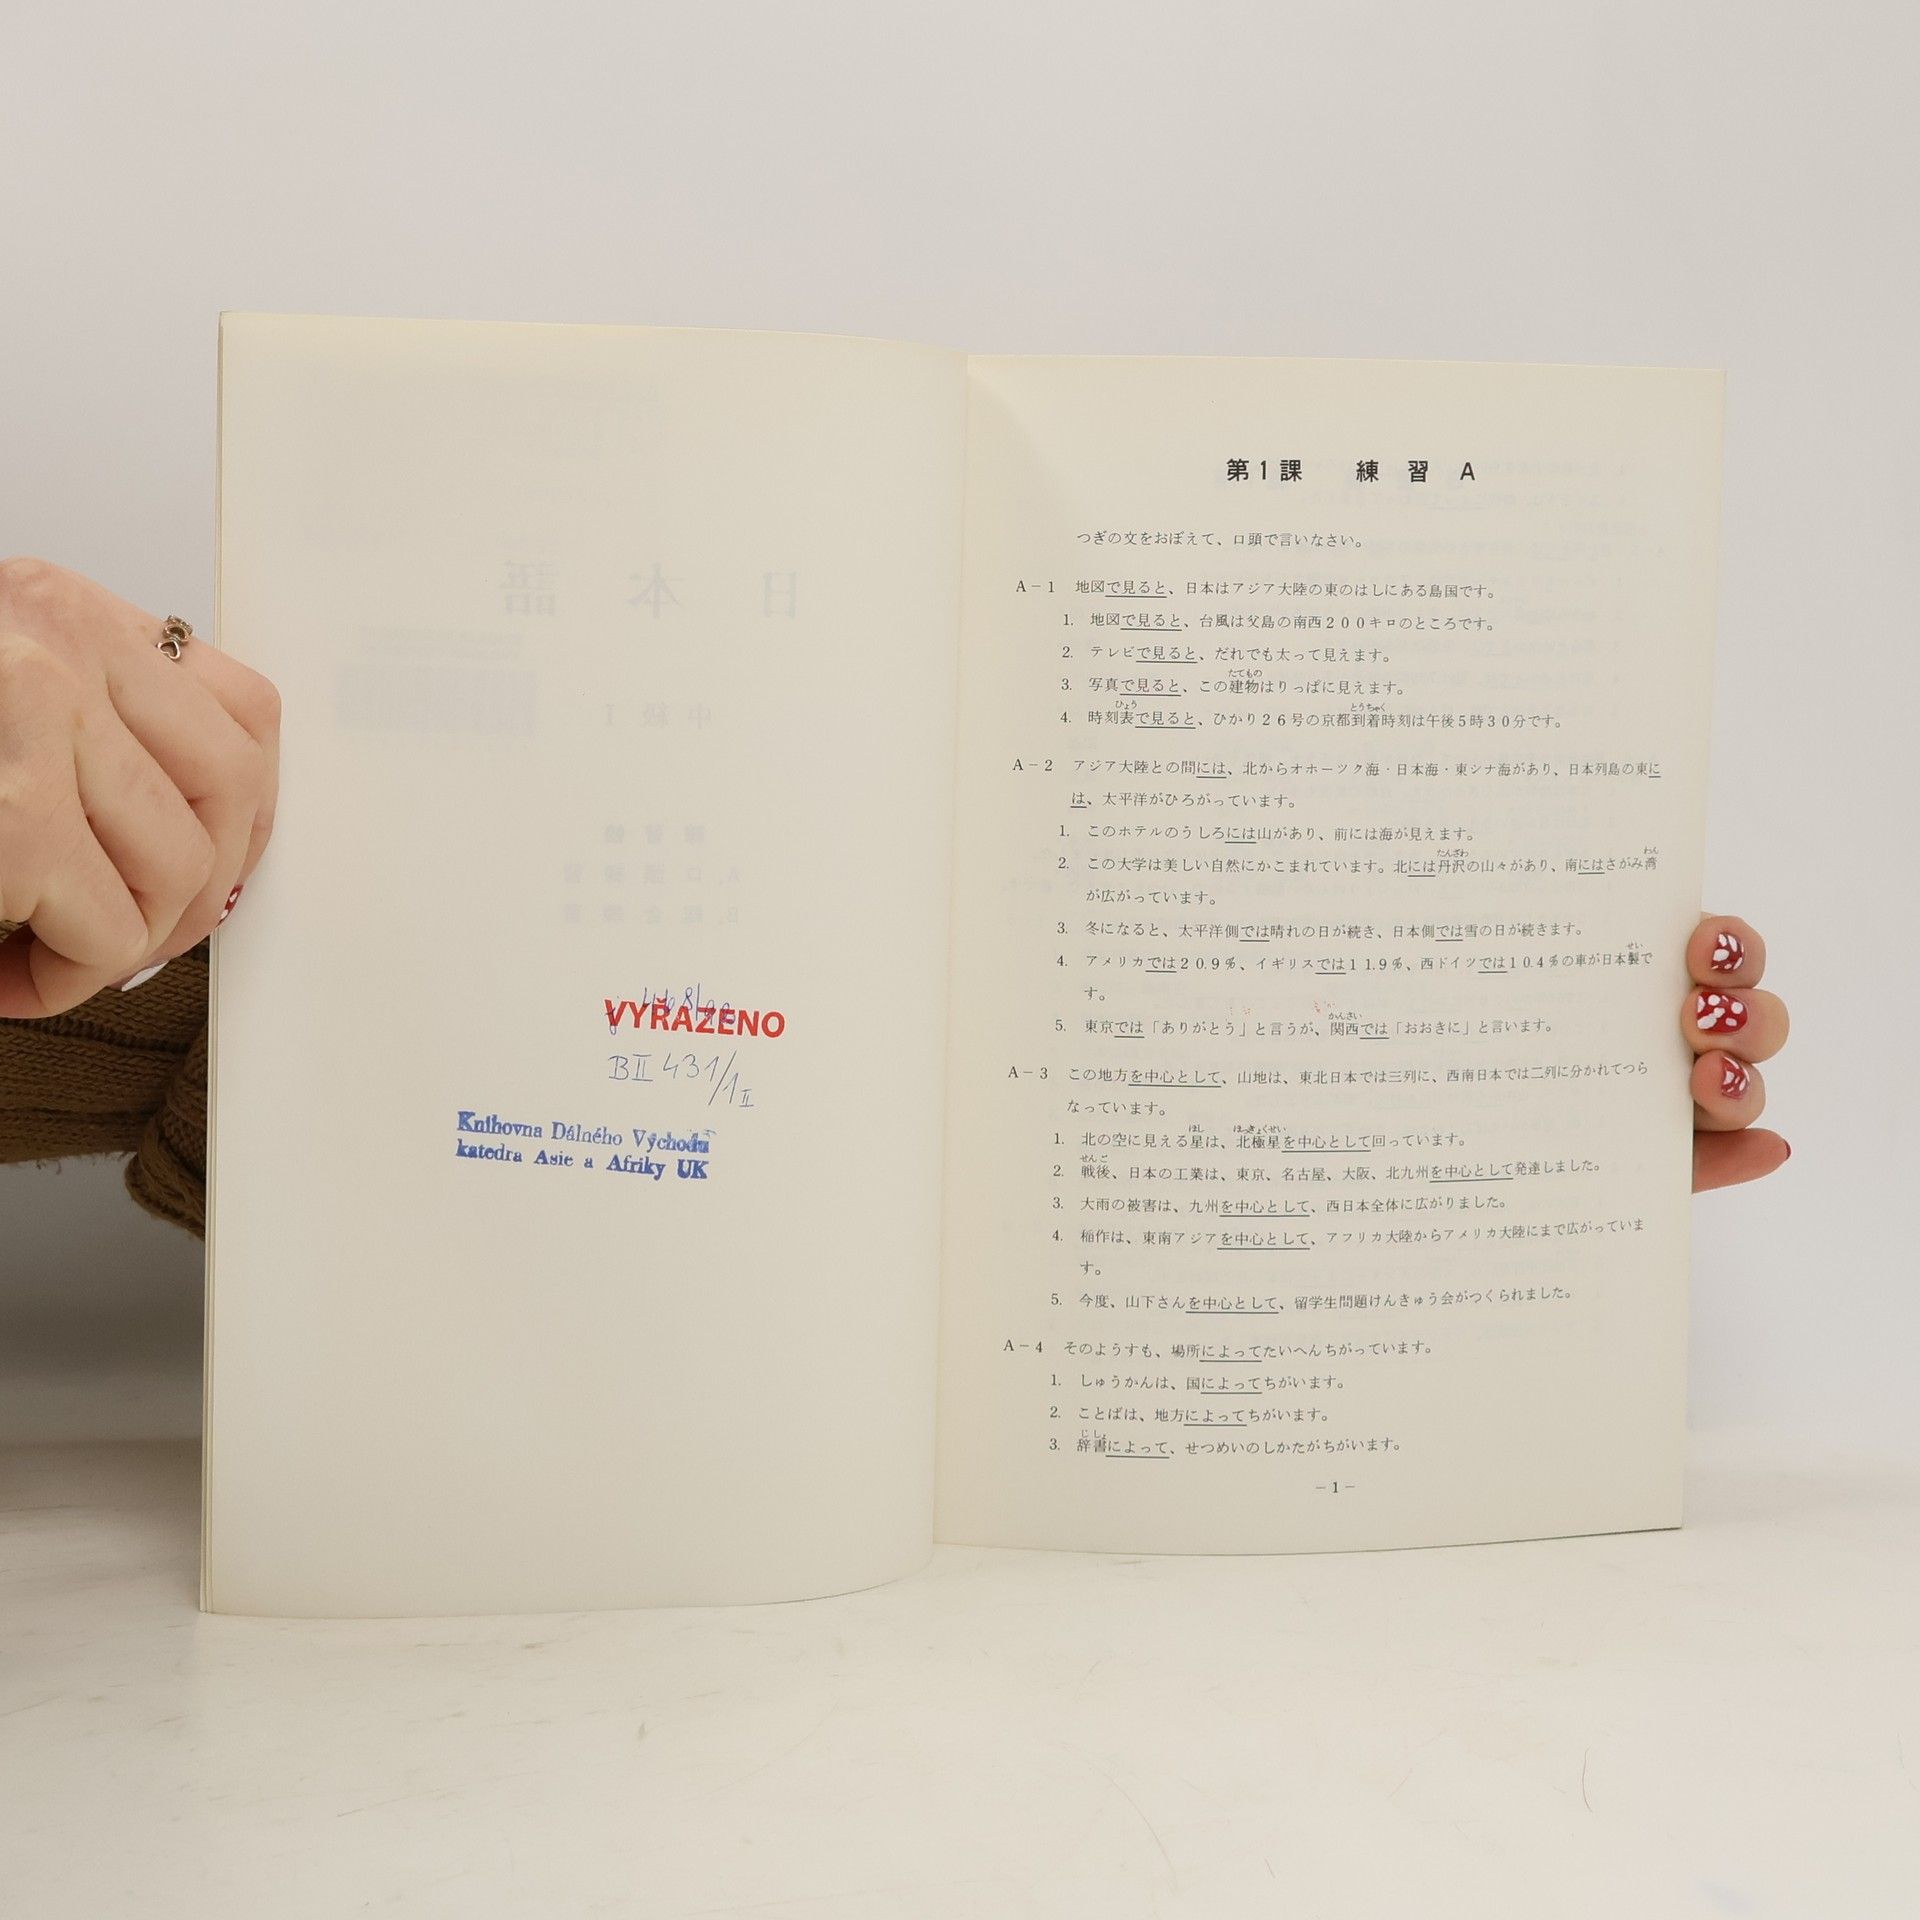 VYŘAZENO
BII 431/1 II
Knihovna Dálného Východu
katedra Asie a Afriky UK
第1課 練習 A
つぎの文をおぼえて、口頭で言いなさい。
A－1 地図で見ると、日本はアジア大陸の東のはしにある島国です。
1. 地図で見ると、台風は父島の南西200キロのところです。
2. テレビで見ると、だれでも太って見えます。
たてもの
3. 写真で見ると、この建物はりっぱに見えます。
ひょう とうちゃく
4. 時刻表で見ると、ひかり26号の京都到着時刻は午後5時30分です。
A－2 アジア大陸との間には、北からオホーツク海・日本海・東シナ海があり、日本列島の東に
は、太平洋がひろがっています。
1. このホテルのうしろには山があり、前には海が見えます。
たんざわ わん
2. この大学は美しい自然にかこまれています。北には丹沢の山々があり、南にはさがみ湾
が広がっています。
3. 冬になると、太平洋側では晴れの日が続き、日本側では雪の日が続きます。
せい
4. アメリカでは20.9%、イギリスでは11.9%、西ドイツでは10.4%の車が日本製で
す。
かんさい
5. 東京では「ありがとう」と言うが、関西では「おおきに」と言います。
A－3 この地方を中心として、山地は、東北日本では三列に、西南日本では二列に分かれてつら
なっています。
ほし ほっきょくせい
1. 北の空に見える星は、北極星を中心として回っています。
せんご
2. 戦後、日本の工業は、東京、名古屋、大阪、北九州を中心として発達しました。
3. 大雨の被害は、九州を中心として、西日本全体に広がりました。
4. 稲作は、東南アジアを中心として、アフリカ大陸からアメリカ大陸にまで広がっていま
す。
5. 今度、山下さんを中心として、留学生問題けんきゅう会がつくられました。
A－4 そのようすも、場所によってたいへんちがっています。
1. しゅうかんは、国によってちがいます。
2. ことばは、地方によってちがいます。
じしょ
3. 辞書によって、せつめいのしかたがちがいます。
－1－